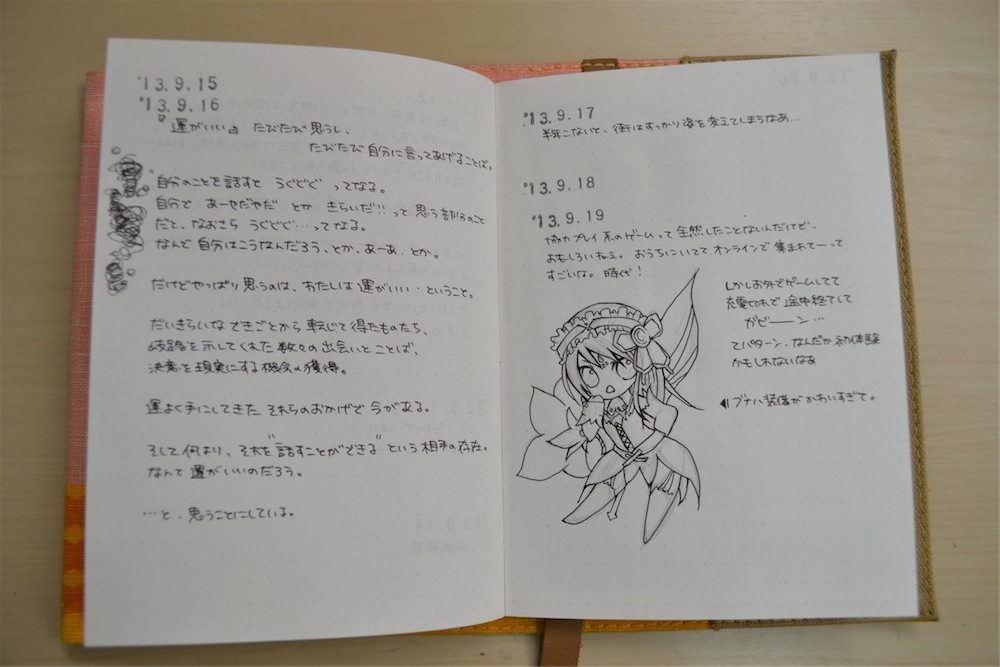 '13.9.15
'13.9.16
『運がいい』 たびたび思うし、
たびたび自分に言ってあげることば。
自分のことを話すと うぐぐぐ ってなる。
自分で あーやだやだ とか きらいだ!! って思う部分のこと
だと、なおさら うぐぐぐ…ってなる。
なんで自分はこうなんだろう、とか、あーあ、とか。
だけどやっぱり思うのは、わたしは運がいい・ということ。
だいきらいな できごとから 転じて得たものたち、
岐路を示してくれた数々の出会いとことば、
決意を現実にする機会の獲得。
運よく手にしてきた それらのおかげで今が在る。
そして何より、それを"話すことができる"という相手の存在。
なんて運がいいのだろう。
…と、思うことにしている。
'13.9.17
半年こないと、街はすっかり姿を変えてしまうなあ…
'13.9.18
'13.9.19
協力プレイ系のゲームって全然したことないんだけど、
おもしろいねぇ。おうちにいてオンラインで集まれてーって
すごいな。時代!
しかしお外でゲームしてて
充電切れで途中終了して
ガビーーン…
てパターン、なんだか初体験
かもしれないなあ
◀ブナハ装備がかわいすぎて。
'13.9.20
'13.9.14